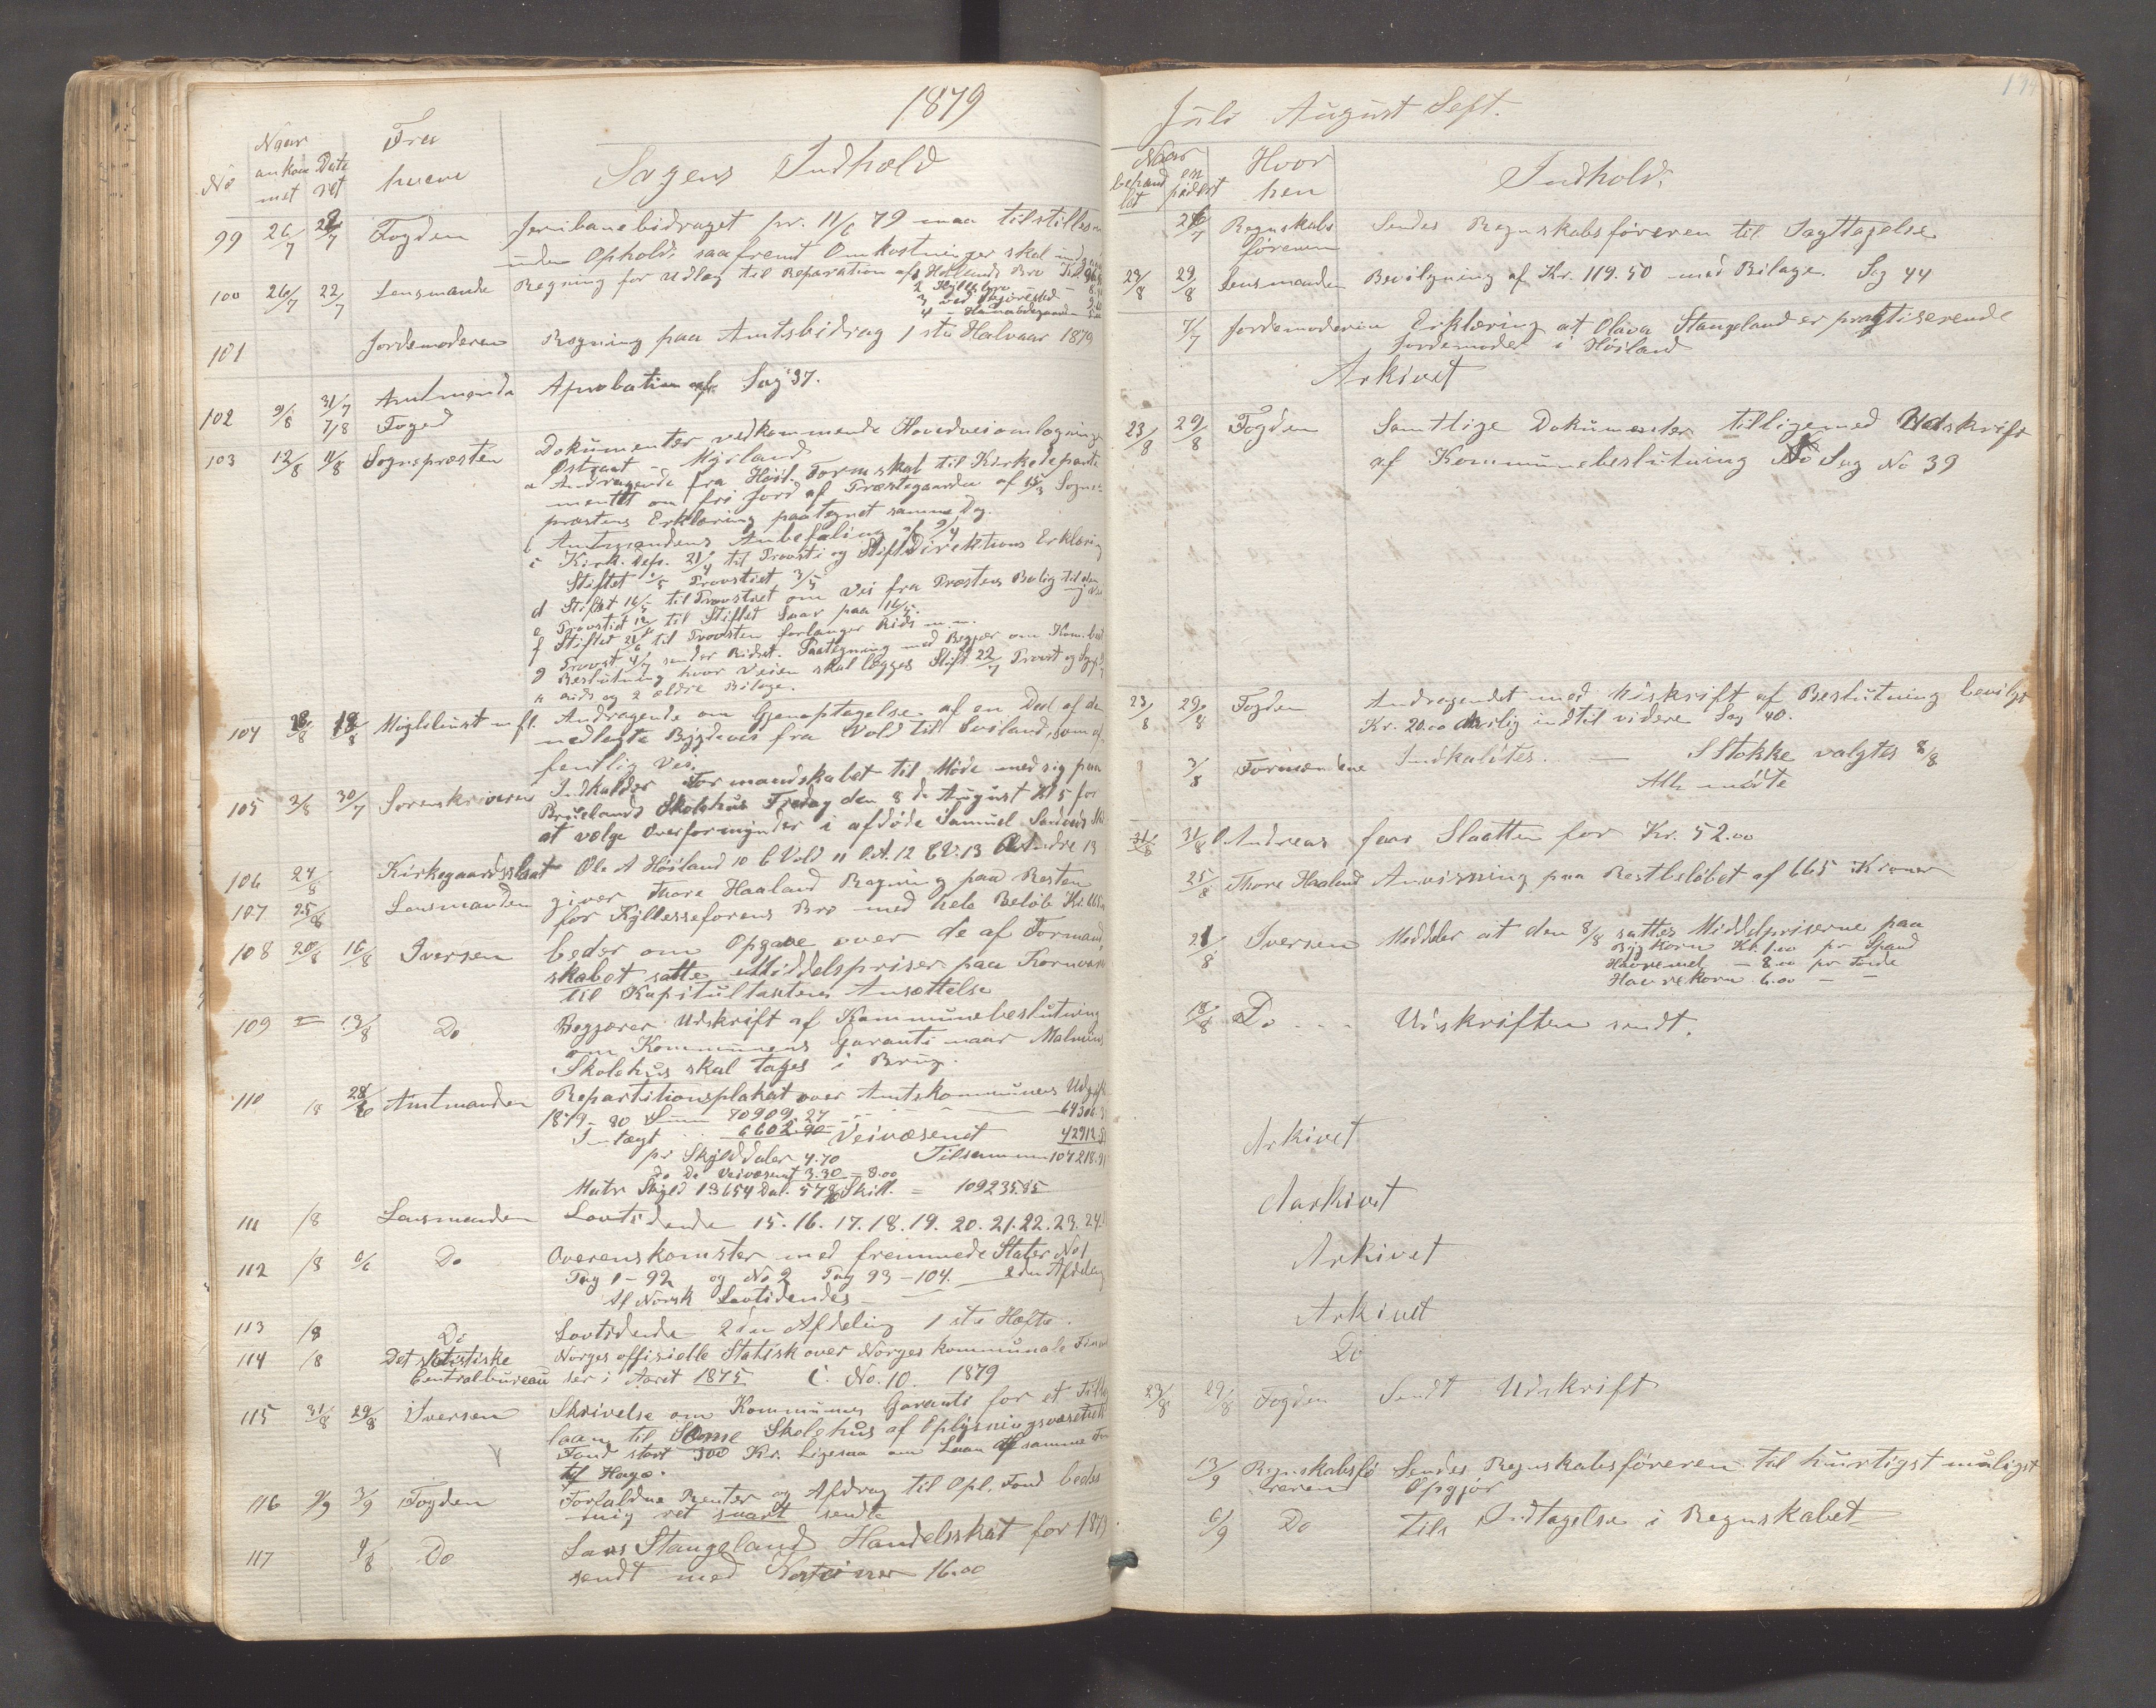 1879
No
Naar ankommet
Date ret
Fra hvem
Sagens Indhold
99 26/7 Fogden Jernbanebidraget pr. 11/6 79 maa tilstilles
uden Ophold, saafremt Omkostninger skal
100 26/7 22/7 Lensmanden Regning for Udlæg til Reparation af 1 Hollands Bro
101 Jordemoderen Regning paa Amtsbidrag 1ste Halvaar 1879
102 9/8 31/7 7/8 Amtmanden Foged Aprobation af Sag 37.
103 12/8 11/8 Sognepræsten Dokumenter vedkommende Hovedveiomlægning
Østraat - Myrland
a Andragende fra Høil. Formskab til Kirkedeparte
mentet om fri Jord af Præstegaarden af 15/3 Sogne
præstens Erklæring paategnet samme Dag.
b Amtmandens Anbefaling af 9/4
c Kirk. Dep. 21/4 til Provsti og Stiftsdirektions Erklæring
Stiftet 1/5 Provstiet 3/5
d Stiftet 16/5 til Provstiet om Vei fra Præstens Bolig til den
e Provstiet til Stiftet Svar paa 16/5.
f Stiftet 21/6 til Provsten forlanger Rids m.m.
g Provst 4/7 sender Ridset. Paategning med Begjær om Kom.
Beslutning hvor Veien skal lægges Stift 22/7 Provst og
h Rids og 2 ældre Bilage.
104 18/8 Miglebust m fl. Andragende om Gjenoptagelse af en Deel af den
nedlagte Bygdevei fra Vold til Sviland, som of
fentlig Vei.
105 2/8 30/7 Sorenskriveren Indkalder Formandskabet til Møde med sig paa
Bruelands Skolehus Fredag den 8de August Kl 5 for
at vælge Overformynder i afdøde Samuel
106 24/8 Kirkegaardsslaat Ole A Høiland 10 C Vold 11 O.A. 12 C.V. 13 O Andre 13
107 25/8 Lensmanden giver Thore Haaland Regning paa Resten
for Kyllesseforens Bro med hele Beløb Kr.
108 20/8 16/8 Iversen beder om Opgave over de af Formand
skabet satte Middelspriser paa Kornvarer
til Kapitultaxtens Ansættelse
109 = 13/8 Do Begjærer Udskrift af Kommunebeslutning
om Kommunens Garanti naar Malmins
Skolehus skal tages i Brug.
110 18 28/6 Amtmanden Repartitionsplakat over Amtskommunens Udgift
1879-80 Sum 70909.27
Indtægt 6602.90 Veivæsenet 42912
pr Skylddaler 4.70 Tilsammen 107218
Do Do Veivæsenet 3.30 = 8.00
Matr Skyld 13654 Dal. 57 Skill. = 109235.85
111 /8 Lensmanden Lovtidende 15.16.17.18.19.20.21.22.23.24.
112 /8 6/6 Do Overenskomster med fremmede Stater No 1
Pag 1-92 og No 2 Pag 93-104. 2den Afdeling
Af Norsk Lovtidendes
113 /8 Do Lovtidende 2den Afdeling 1ste Hefte.
114 /8 Det statistiske Centralbureau Norges offisielle Statisk over Norges kommunale Finan
ser i Aaret 1875 C. No. 10. 1879
115 31/8 29/8 Iversen Skrivelse om Kommunes Garanti for et Tillægs
laan til Some Skolehus af Oplysningsvæsenets
Fond stort 300 Kr. Ligesaa om Laan af samme Fon
til Hage.
116 9/9 3/9 Fogden Forfaldne Renter og Afdrag til Opl. Fond bedes
mig ret snart sendte
117 4/8 Do Lars Stangeland Handelsskat for 1879
sendt med Kroner 16.00
Juli August Sept.
Naar behandlet
expedert
Hvor hen
Indhold.
26/7 Regnskabsføreren Sendes Regnskabsføreren til Iagttagelse
23/8 29/8 Lensmanden Bevilgning af Kr. 119.50 med Bilage. Sag 44
7/7 Jordemoderen Erklæring at Olava Stangeland er praktiserende
Jordemoder i Høiland
Arkivet
23/8 29/8 Fogden Samtlige Dokumenter tilligemed Udskrift
af Kommunebeslutning Sag No 39
23/8 29/8 Fogden Andragendet med Udskrift af Beslutning bevilgt
Kr. 20.00 aarlig indtil videre Sag 40.
3/8 Formændene Indkaldtes. — S Stokke valgtes 8/8
Alle mødte
31/8 31/8 O Andreas faar Slaatten for Kr. 52.00
25/8 Thore Haaland Anvisning paa Restbeløbet af 665 Kroner
21/8 Iversen Meddeler at den 8/8 sattes Middelpriserne paa
Byg Korn Kr. 1.00 pr Spand
Havremel - 8.00 pr Tønde
Havrekorn 6.00 — —
18/8 Do - - Udskriften sendt.
Arkivet
Aarkivet
Arkivet
Arkivet
Do
23/8 29/8 Fogden Sendt Udskrift
13/9 Regnskabsføreren Sendes Regnskabsføreren til hurtigst muligst
Opgjør
6/9 Do Til Indtagelse i Regnskabet